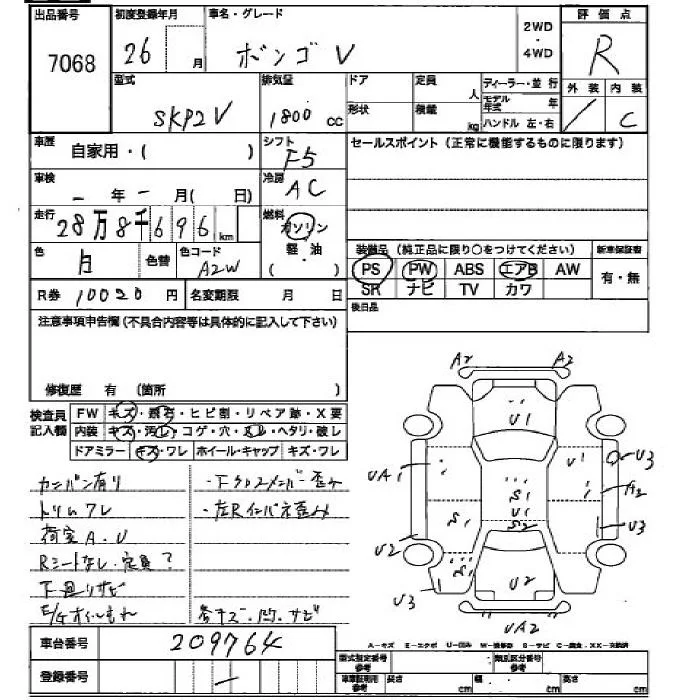 出品番号 初度登録年月 車名・グレード 2WD・4WD 評価点
7068 26 月 ボンゴ V R
型式 排気量 ドア 定員 人 ディーラー・並行 外装 内装
SKP2V 1800 cc 形状 積載 kg モデル年式 年 ハンドル 左・右 / C
車歴 自家用・( ) シフト F5 セールスポイント(正常に機能するものに限ります)
車検 - 年 - 月( 日) 冷房 AC
走行 28万8千696 km 燃料 ガソリン・軽油 ( )
色 白 色替 色コード A2W
装備品(純正品に限り○をつけてください) 新車保証書
PS PW ABS エアB AW 有・無
SR ナビ TV カワ
R券 10020 円 名変期限 月 日 後日品
注意事項申告欄(不具合内容等は具体的に記入して下さい)
修復歴 有 (箇所 )
検査員記入欄 FW キズ・飛石・ヒビ割・リペア跡・X要
内装 キズ・汚レ・コゲ・穴・スレ・ヘタリ・破レ
ドアミラー キズ・ワレ ホイール・キャップ キズ・ワレ
カンバン有り
トリムワレ
荷室A.U
Rシートなし・定員?
下廻リサビ
E/Gオイルもれ
・左Rインパネ歪み
各キズ・凹・サビ
A2 A2
U1
UA1 U1 U3
S1 A2
U1
S1 S2 U3
U2 S1
U3 U2
UA2
A-キズ E-エクボ U-凹み W-補修跡 S-サビ C-腐食 X・XX-交換済
車台番号 209764
登録番号 -
型式指定番号参考 類別区分番号参考
車庫証明用参考 長さ cm 幅 cm 高さ cm